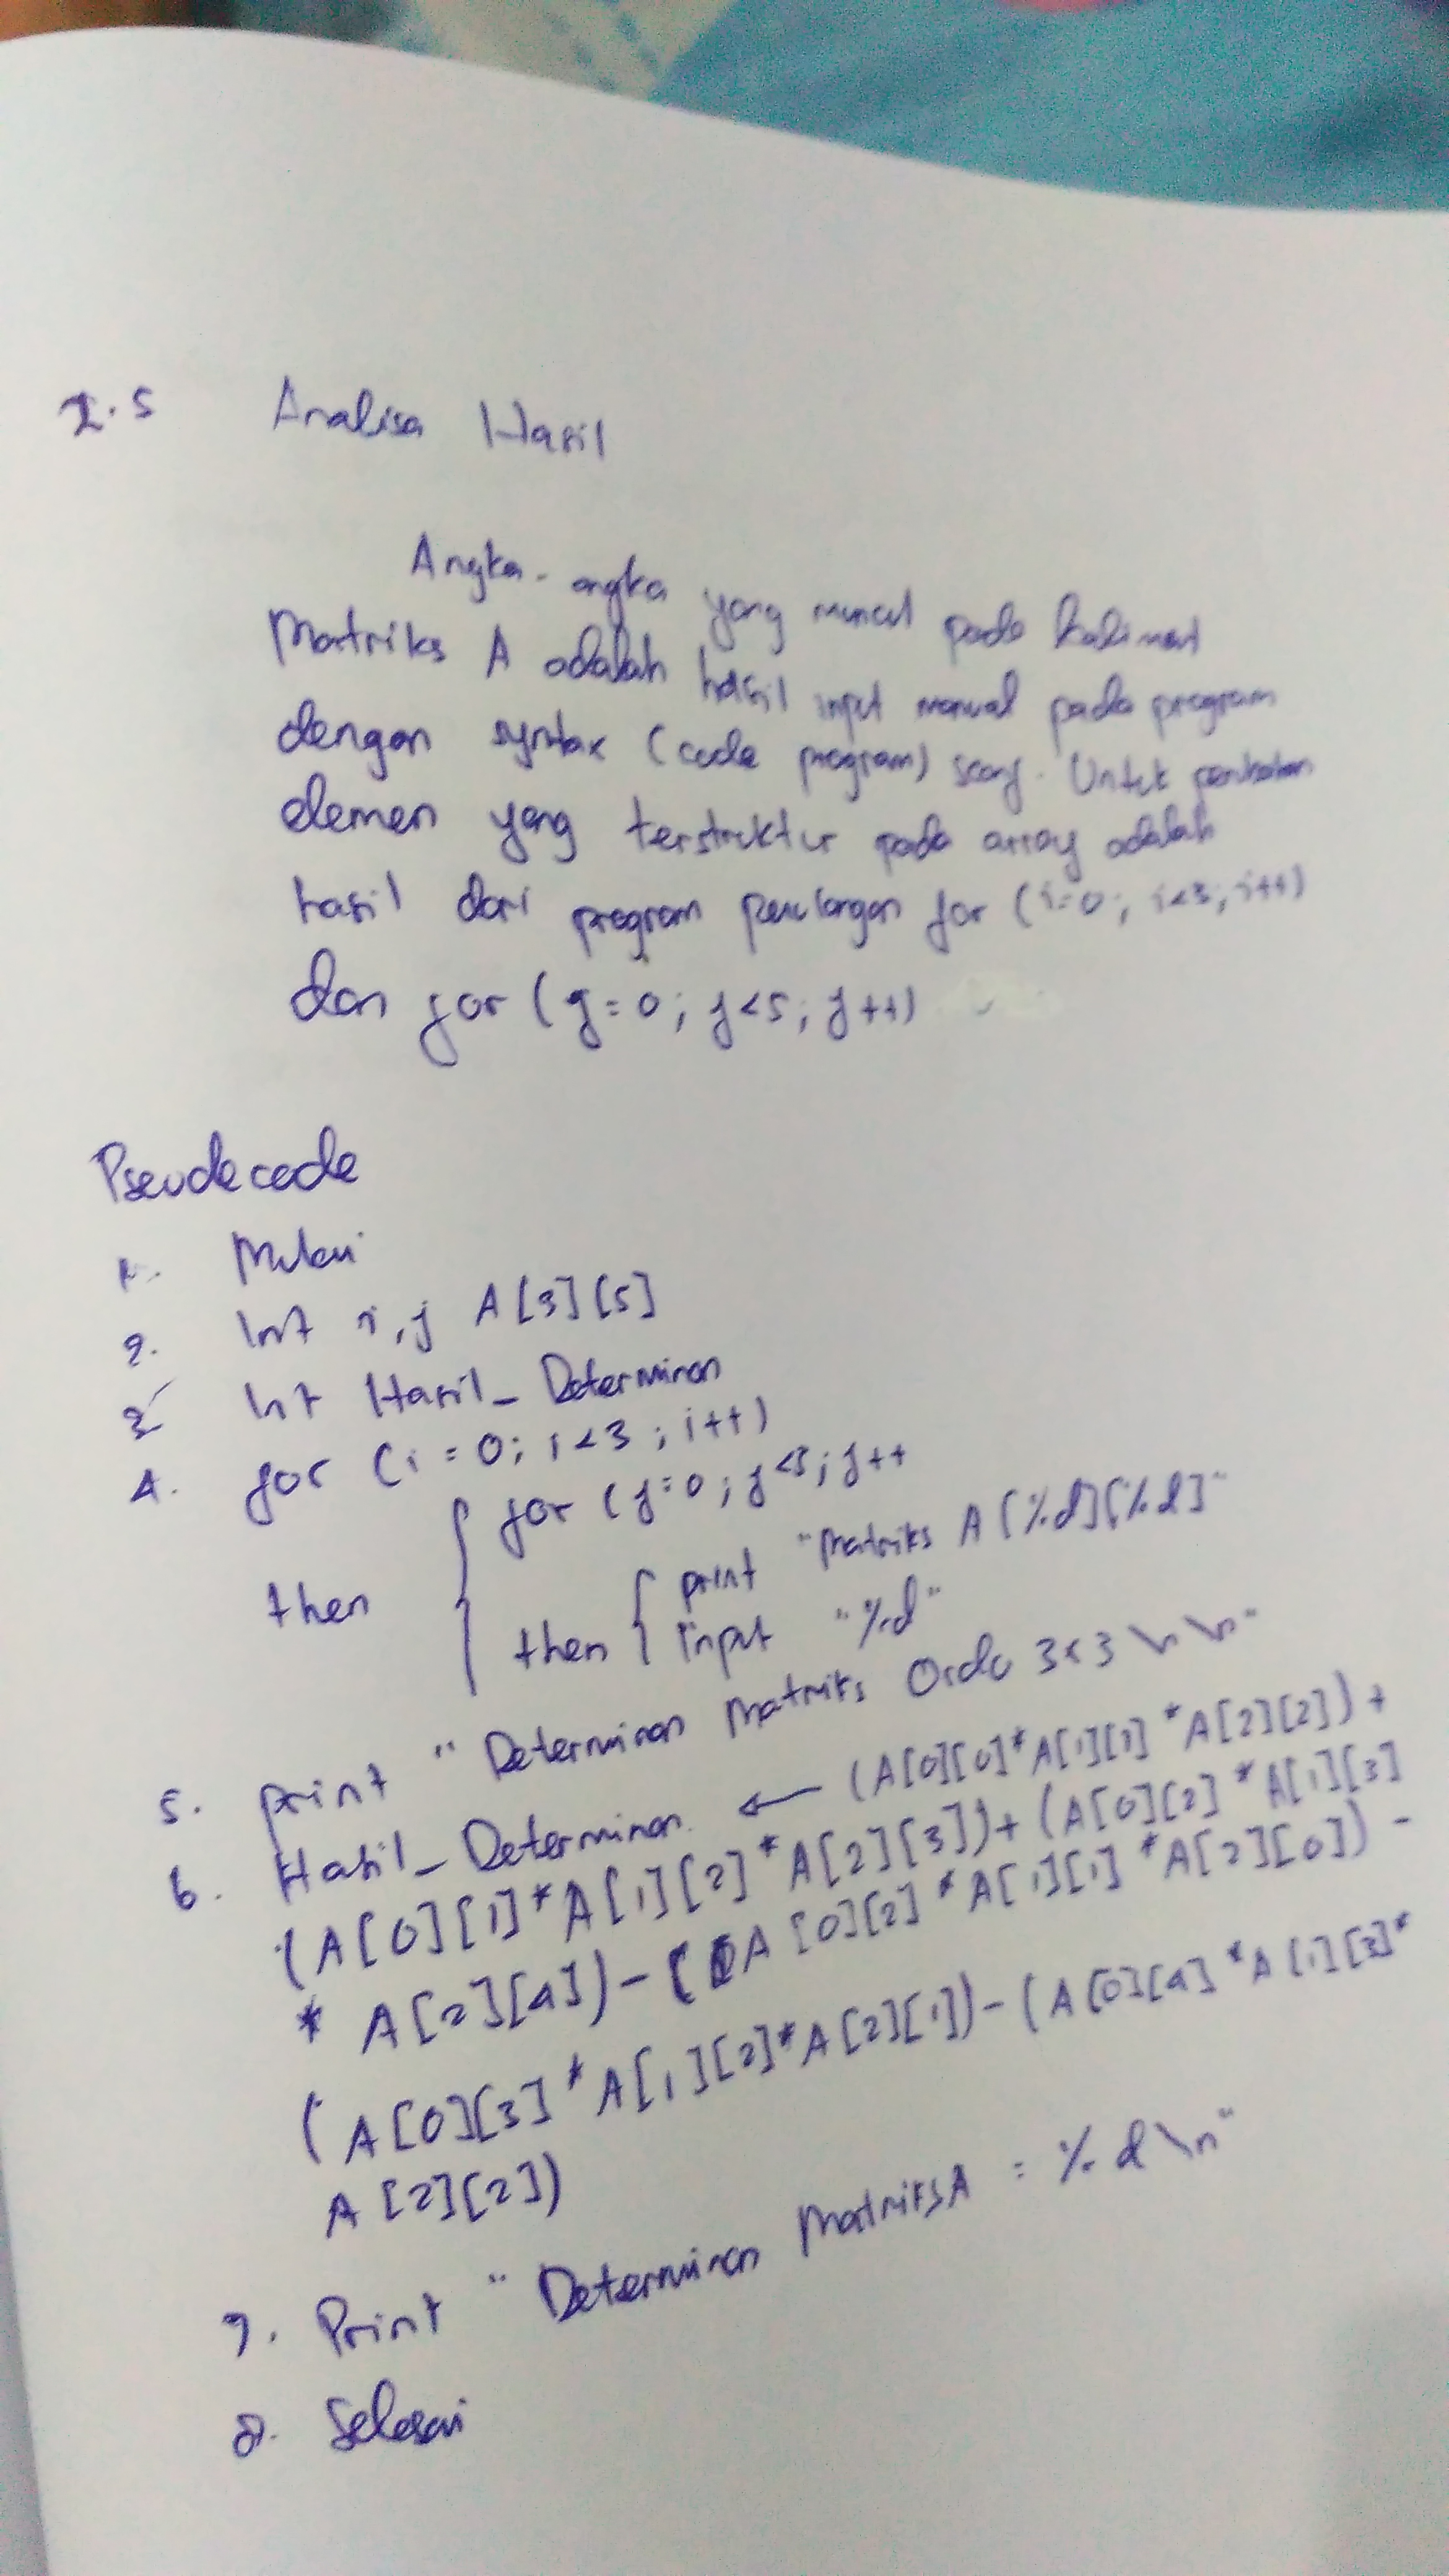 2.5 Analisa Hasil
Angka-angka yang muncul pada kalimat
Matriks A adalah hasil input manual pada program
dengan syntax (code program) scanf. Untuk
elemen yang terstruktur pada array adalah
hasil dari program perulangan for (i=0; i<3; i++)
dan for (j=0; j<5; j++)
Pseudecode
1. Mulai
2. Int i,j A[3][5]
3. Int Hasil_Determinan
4. for (i=0; i<3; i++)
for (j=0; j<3; j++
then
print "Matriks A[%d][%d]"
then input "%d"
5. print "Determinan Matriks Ordo 3x3 \n\n"
6. Hasil_Determinan. ← (A[0][0]*A[1][1]*A[2][2])+
(A[0][1]*A[1][2]*A[2][3])+(A[0][2]*A[1][3]
* A[2][4])-(A[0][2]*A[1][1]*A[2][0])-
(A[0][3]*A[1][2]*A[2][1])-(A[0][4]*A[1][3]*
A[2][2])
7. Print "Determinan Matriks A = %d\n"
8. Selesai